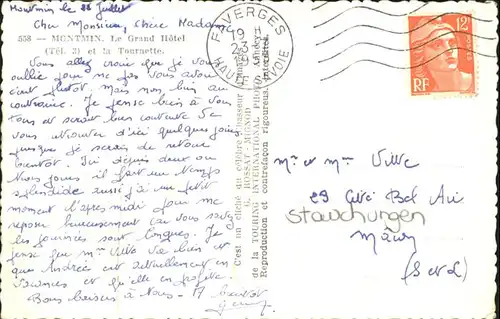 Montmin le 22 Juillet
Cher Monsieur, Chère Madame
558 — MONTMIN. Le Grand Hôtel
(Tél. 3) et la Tournette.
Vous allez croire que je vous
oublie pour ne pas vous avoir
écrit plutôt Mais non, bien au
contraire. Je pense bien à vous
tous et serait bien contente de
vous retrouver d'ici quelques jours
puisque je serais de retour
bientôt. Ici depuis deux ou
trois jours il fait un temps
splendide aussi j'ai un petit
moment l'après midi pour me
reposer heureusement car vous savez
les journées sont longues. Je
pense que Mme Ville va bien et
que Andrée est actuellement en
vacances et qu'elle en profite.
Bons baisers à tous - A bientôt
FAVERGES
19 H
23
HAUTE-SAVOIE
12F
RF
C'est un cliché du célèbre chasseur d'images
G. ROSSAT-MIGNOD
de la TOURING INTERNATIONAL PHOTO
Reproduction et contrefaçon rigoureus. interdites
Mr et Mme Ville
29 Cité Bel Air
Stauchungen
Mâcon
(S et L)